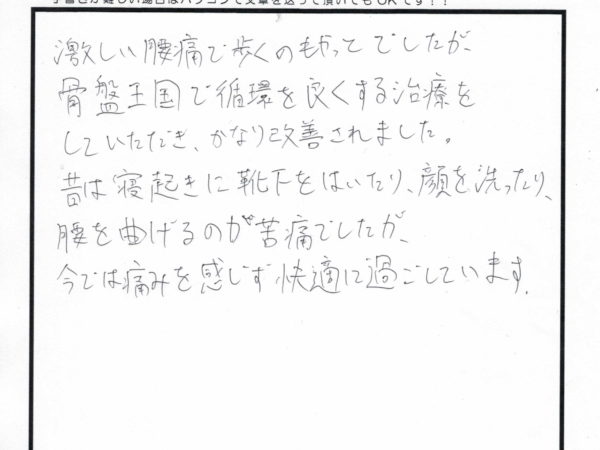 手書きが難しい場合はパソコンで文章を送って頂いてもOKです！！
激しい腰痛で歩くのもやってでしたが、
骨盤王国で循環を良くする治療を
していただき、かなり改善されました。
昔は寝起きに靴下をはいたり、顔を洗ったり、
腰を曲げるのが苦痛でしたが、
今では痛みを感じず快適に過ごしています。